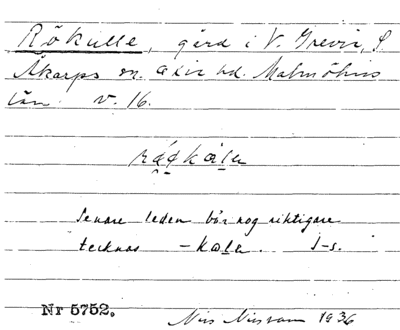 Rökulle, gård i V. Grevie, S.
Åkarps sn. Oxie hd. Malmöhus
län. v. 16.
Senare leden bör nog riktigare
tecknas -kala. I-s.
Nr 5752.
Nils Nilsson 1936